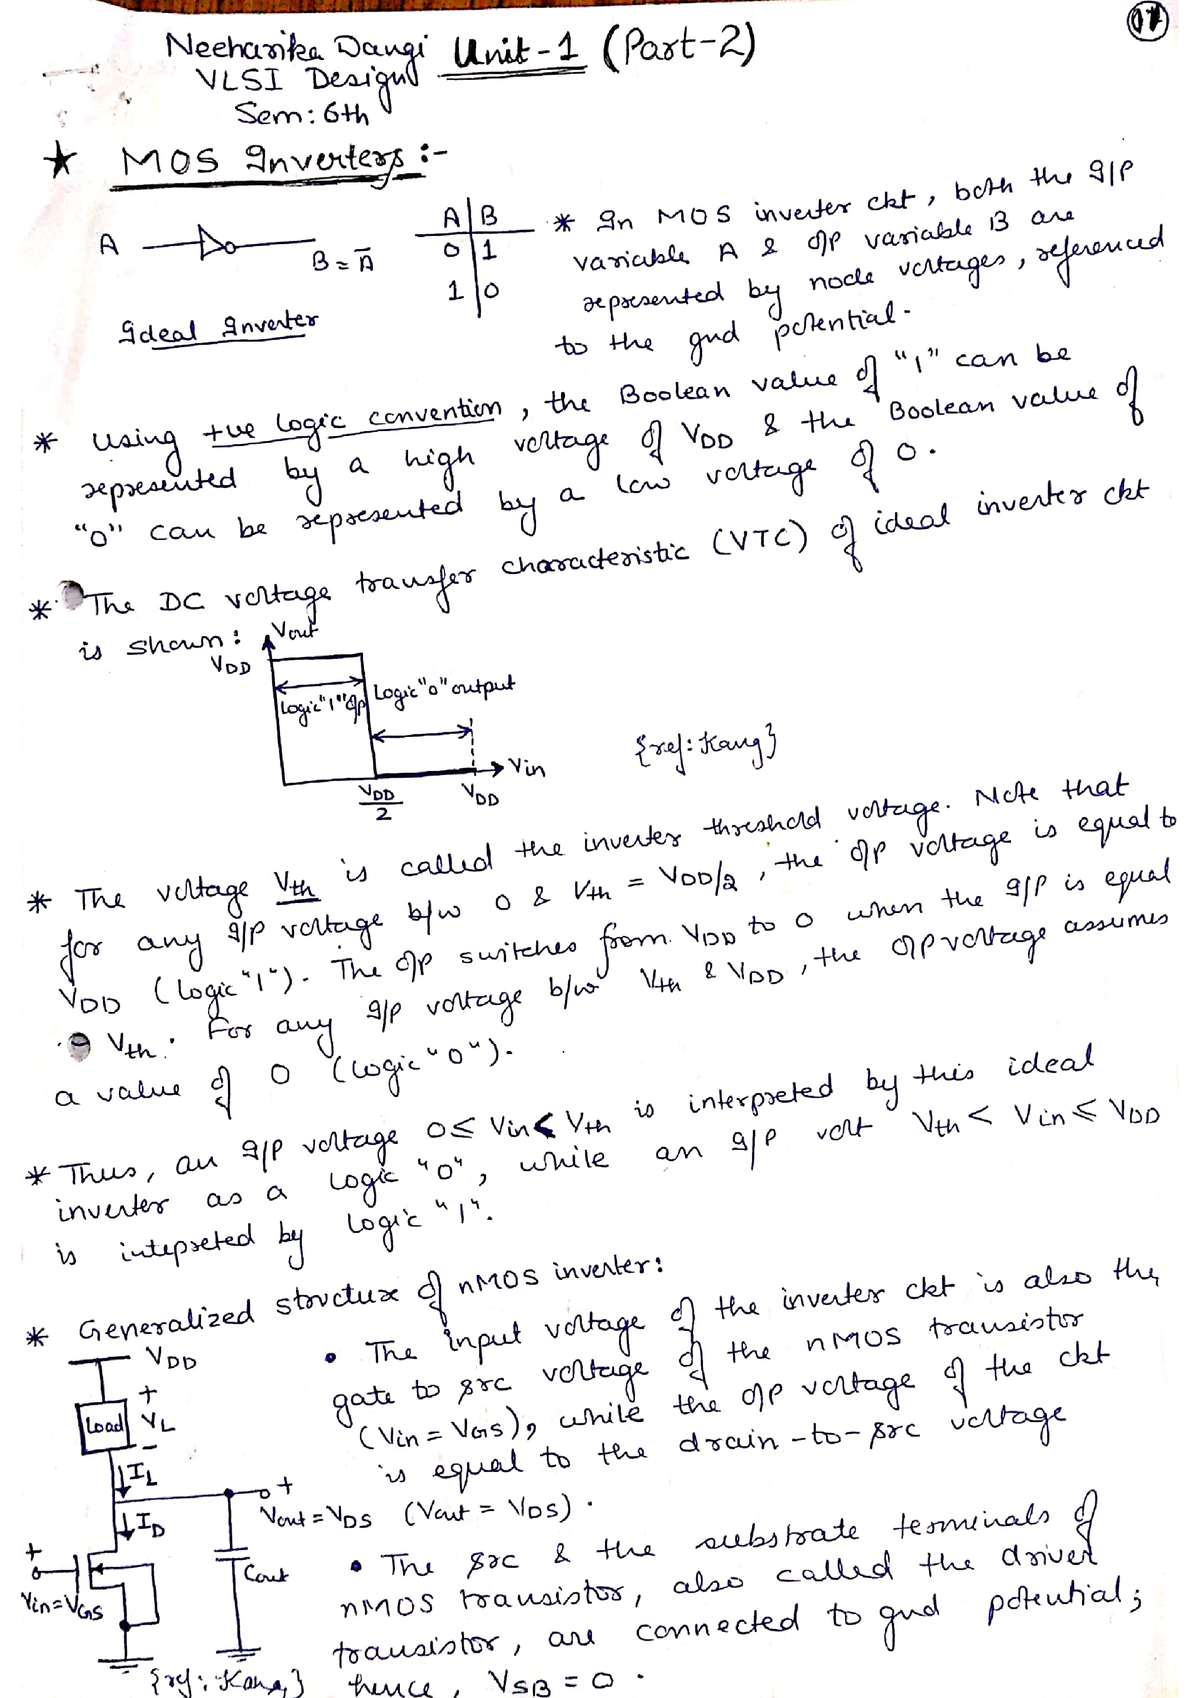 17
Neeharika Dangi Unit-1 (Part-2)
VLSI Design
Sem: 6th
★ MOS Inverters :-
A B = A̅
A | B
0 | 1
1 | 0
Ideal Inverter
* In MOS inverter ckt, both the I/P
variable A & O/P variable B are
represented by node voltages, referenced
to the gnd potential.
* Using +ve logic convention, the Boolean value of "1" can be
represented by a high voltage of VDD & the Boolean value of
"0" can be represented by a low voltage of 0.
* The DC voltage transfer characteristic (VTC) of ideal inverter ckt
is shown:
Vout
VDD
Logic "1" O/P
Logic "0" output
Vin
VDD/2
VDD
{ref: Kang}
* The voltage Vth is called the inverter threshold voltage. Note that
for any I/P voltage b/w 0 & Vth = VDD/2, the O/P voltage is equal to
VDD (Logic "1"). The O/P switches from VDD to 0 when the I/P is equal
Vth. For any I/P voltage b/w Vth & VDD, the O/P voltage assumes
a value of 0 (Logic "0").
* Thus, an I/P voltage 0 ≤ Vin < Vth is interpreted by this ideal
inverter as a Logic "0", while an I/P volt Vth < Vin ≤ VDD
is intepreted by Logic "1".
* Generalized structure of nMOS inverter:
VDD
+
Load VL
-
IL
ID
+
Vout = VDS
Cout
+
Vin = VGS
{ref: Kang}
• The input voltage of the inverter ckt is also the
gate to src voltage of the nMOS transistor
(Vin = VGS), while the O/P voltage of the ckt
is equal to the drain-to-src voltage
(Vout = VDS).
• The src & the substrate terminals of
nMOS transistor, also called the driver
transistor, are connected to gnd potential;
hence, VSB = 0.